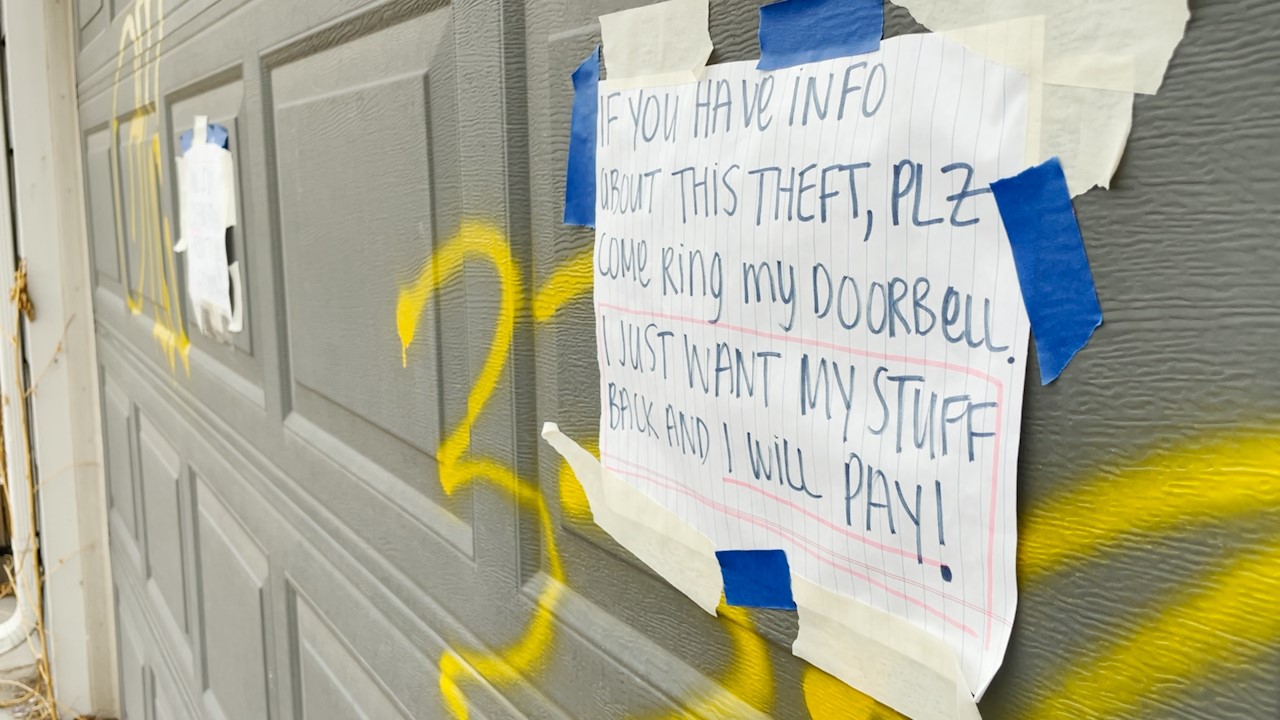 IF YOU HAVE INFO
ABOUT THIS THEFT, PLZ
COME RING MY DOORBELL.
I JUST WANT MY STUFF
BACK AND I WILL PAY!